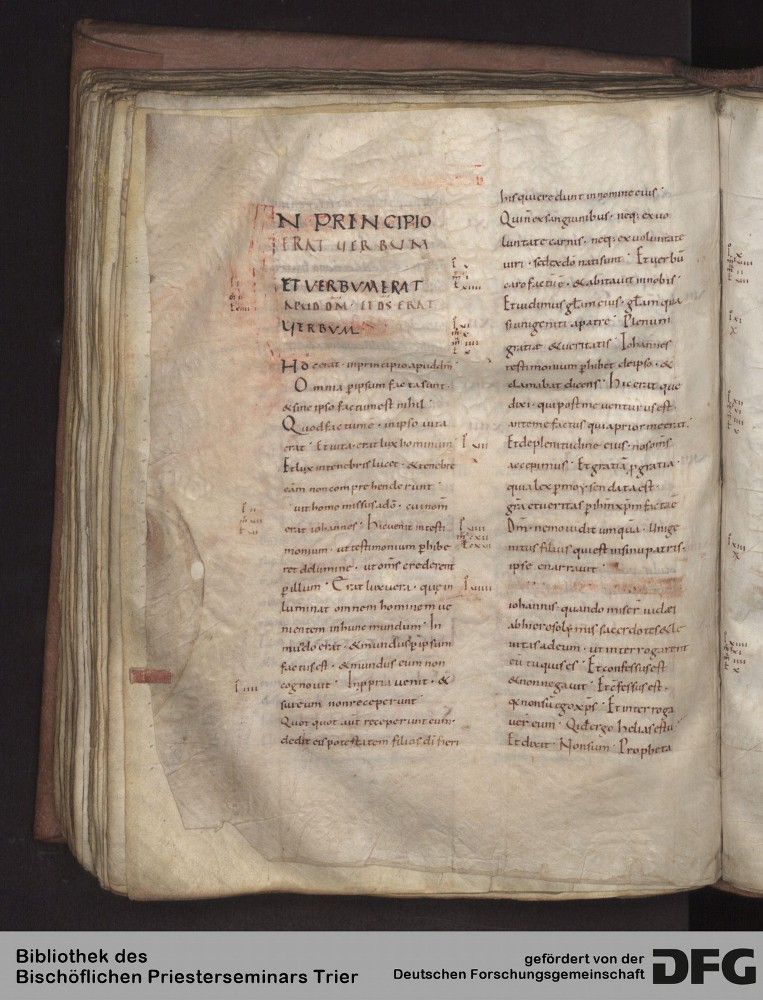 N PRINCIPIO
ERAT UERBUM
ET UERBUM ERAT
APUD DM̄ ET DS̄ ERAT
UERBUM
Hoc erat in principio apud dm̄
Omnia ꝑ ipsum facta sunt
& sine ipso factum est nihil
Quod factum ē in ipso uita
erat Et uita erat lux hominum
Et lux in tenebris lucet & tenebre
eam non comprehenderunt
uit homo missus a dō cui nom̄
erat iohannes Hic uenit in testi
monium ut testimonium ꝑhibe
ret de lumine ut om̄s crederent
ꝑ illum Erat lux uera quę in
luminat omnem hominem ue
nientem in hunc mundum In
mundo erat & mundus ꝑ ipsum
factus est & mundus eum non
cognouit In ꝓpria uenit &
sui eum non receperunt
Quot quot aūt receperunt eum
dedit eis potestatem filios dī fieri
his qui credunt in nomine eius
Qui n̄ ex sanguinibus neq; ex uo
luntate carnis neq; ex uoluntate
uiri sed ex dō nati sunt Et uerbū
caro factū ē & abitauit in nobis
Et uidimus glam eius glam qua
si unigeniti a patre Plenum
gratiae & ueritatis Iohannes
testimonium ꝑhibet de ipso &
clamabat dicens Hic erat quē
dixi qui post me uenturus est
ante me factus quia prior me erat
Et de plenitudine eius nos om̄s
accepimus Et gratiā ꝓ gratia
quia lex ꝑ moysen data est
gr̄a et ueritas ꝑ ihm xp̄m facta ē
Dm̄ nemo uidit umquā Unige
nitus filius qui est in sinu patris
ipse enarrauit
iohannis quando misert̄ iudaei
ab hierosolymis sacerdotes & le
uitas ad eum ut interrogarent
eū tu quis es Et confessus est
& non negauit Et cfessus est
q̄ non sū ego xp̄s Et interroga
uer eum Quid ergo helias es tu
Et dixit Non sum Propheta
Bibliothek des
Bischöflichen Priesterseminars Trier
gefördert von der
Deutschen Forschungsgemeinschaft
DFG